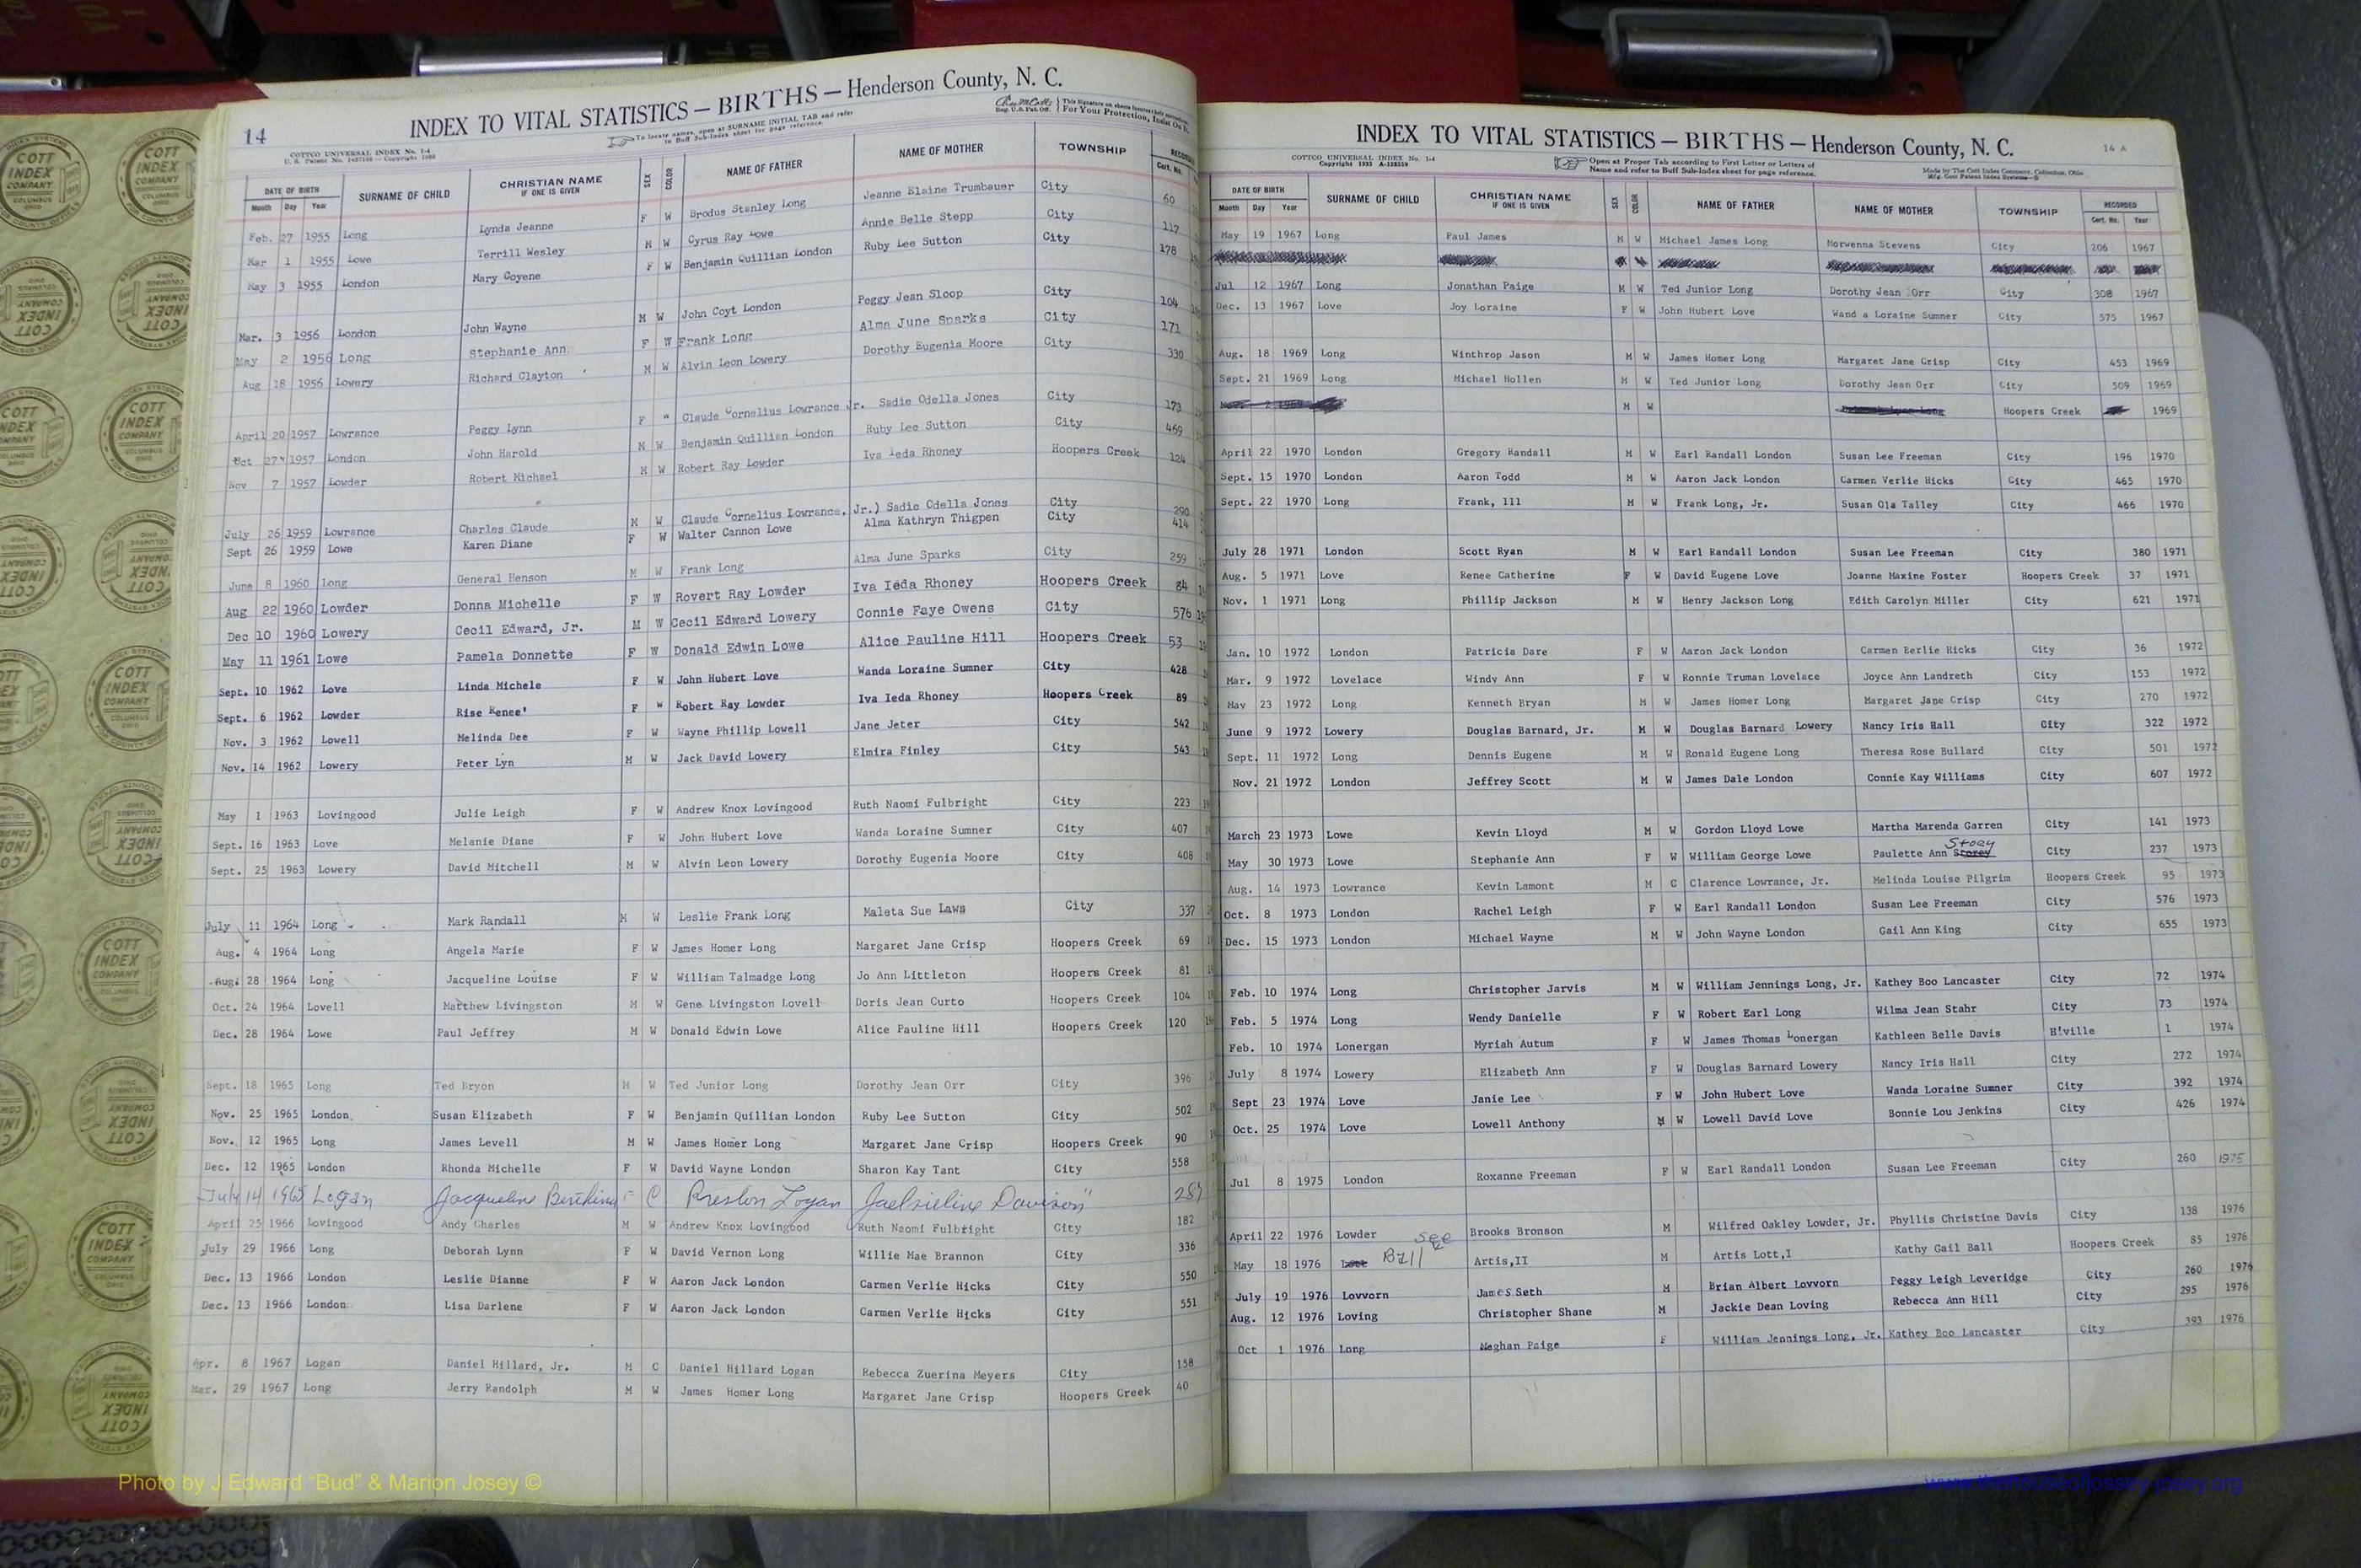 14
INDEX TO VITAL STATISTICS — BIRTHS — Henderson County, N. C.
COTTCO UNIVERSAL INDEX No. 1-4
To locate names, open at SURNAME INITIAL TAB and refer
to Buff Sub-Index sheet for page reference.
Reg. U.S. Pat. Off.
DATE OF BIRTH Month Day Year SURNAME OF CHILD CHRISTIAN NAME IF ONE IS GIVEN SEX COLOR NAME OF FATHER NAME OF MOTHER TOWNSHIP Cert. No.
Feb. 27 1955 Long Lynda Jeanne F W Brodus Stanley Long Jeanne Elaine Trumbauer City 60
Mar 1 1955 Lowe Terrill Wesley M W Cyrus Ray Lowe Annie Belle Stepp City 117
May 3 1955 London Mary Goyene F W Benjamin Quillian London Ruby Lee Sutton City 178
Mar. 3 1956 London John Wayne M W John Coyt London Peggy Jean Sloop City 104
May 2 1956 Long Stephanie Ann F W Frank Long Alma June Sparks City 171
Aug 18 1956 Lowery Richard Clayton M W Alvin Leon Lowery Dorothy Eugenia Moore City 330
April 20 1957 Lowrance Peggy Lynn F " Claude Cornelius Lowrance Jr. Sadie Odella Jones City 173
Oct 27 1957 London John Harold M W Benjamin Quillian London Ruby Lee Sutton City 469
Nov 7 1957 Lowder Robert Michael M W Robert Ray Lowder Iva Ieda Rhoney Hoopers Creek 124
July 26 1959 Lowrance Charles Claude M W Claude Cornelius Lowrance, Jr.) Sadie Odella Jones City 290
Sept 26 1959 Lowe Karen Diane F W Walter Cannon Lowe Alma Kathryn Thigpen City 414
June 8 1960 Long General Henson M W Frank Long Alma June Sparks City 259
Aug 22 1960 Lowder Donna Michelle F W Rovert Ray Lowder Iva Ieda Rhoney Hoopers Creek 84
Dec 10 1960 Lowery Cecil Edward, Jr. M W Cecil Edward Lowery Connie Faye Owens City 576
May 11 1961 Lowe Pamela Donnette F W Donald Edwin Lowe Alice Pauline Hill Hoopers Creek 53
Sept. 10 1962 Love Linda Michele F W John Hubert Love Wanda Loraine Sumner City 428
Sept. 6 1962 Lowder Rise Renee' F W Robert Ray Lowder Iva Ieda Rhoney Hoopers Creek 89
Nov. 3 1962 Lowell Melinda Dee F W Wayne Phillip Lowell Jane Jeter City 542
Nov. 14 1962 Lowery Peter Lyn M W Jack David Lowery Elmira Finley City 543
May 1 1963 Lovingood Julie Leigh F W Andrew Knox Lovingood Ruth Naomi Fulbright City 223
Sept. 16 1963 Love Melanie Diane F W John Hubert Love Wanda Loraine Sumner City 407
Sept. 25 1963 Lowery David Mitchell M W Alvin Leon Lowery Dorothy Eugenia Moore City 408
July 11 1964 Long Mark Randall M W Leslie Frank Long Maleta Sue Laws City 337
Aug. 4 1964 Long Angela Marie F W James Homer Long Margaret Jane Crisp Hoopers Creek 69
Aug. 28 1964 Long Jacqueline Louise F W William Talmadge Long Jo Ann Littleton Hoopers Creek 81
Oct. 24 1964 Lovell Matthew Livingston M W Gene Livingston Lovell Doris Jean Curto Hoopers Creek 104
Dec. 28 1964 Lowe Paul Jeffrey M W Donald Edwin Lowe Alice Pauline Hill Hoopers Creek 120
Sept. 18 1965 Long Ted Bryon M W Ted Junior Long Dorothy Jean Orr City 396
Nov. 25 1965 London Susan Elizabeth F W Benjamin Quillian London Ruby Lee Sutton City 502
Nov. 12 1965 Long James Levell M W James Homer Long Margaret Jane Crisp Hoopers Creek 90
Dec. 12 1965 London Rhonda Michelle F W David Wayne London Sharon Kay Tant City 558
July 14 1965 Logan Jacqueline F C Preston Logan Davison
April 25 1966 Lovingood Andy Charles M W Andrew Knox Lovingood Ruth Naomi Fulbright City 182
July 29 1966 Long Deborah Lynn F W David Vernon Long Willie Mae Brannon City 336
Dec. 13 1966 London Leslie Dianne F W Aaron Jack London Carmen Verlie Hicks City 550
Dec. 13 1966 London Lisa Darlene F W Aaron Jack London Carmen Verlie Hicks City 551
Apr. 8 1967 Logan Daniel Hillard, Jr. M C Daniel Hillard Logan Rebecca Zuerina Meyers City 158
Mar. 29 1967 Long Jerry Randolph M W James Homer Long Margaret Jane Crisp Hoopers Creek 40
INDEX TO VITAL STATISTICS — BIRTHS — Henderson County, N. C.
14 A
COTTCO UNIVERSAL INDEX No. 1-4
Open at Proper Tab according to First Letter or Letters of
Name and refer to Buff Sub-Index sheet for page reference.
Made by The Cott Index Company, Columbus, Ohio
DATE OF BIRTH Month Day Year SURNAME OF CHILD CHRISTIAN NAME IF ONE IS GIVEN SEX COLOR NAME OF FATHER NAME OF MOTHER TOWNSHIP RECORDED Cert. No. Year
May 19 1967 Long Paul James M W Michael James Long Morwenna Stevens City 206 1967
Jul 12 1967 Long Jonathan Paige M W Ted Junior Long Dorothy Jean Orr City 308 1967
Dec. 13 1967 Love Joy Loraine F W John Hubert Love Wand a Loraine Sumner City 575 1967
Aug. 18 1969 Long Winthrop Jason M W James Homer Long Margaret Jane Crisp City 453 1969
Sept. 21 1969 Long Michael Hollen M W Ted Junior Long Dorothy Jean Orr City 509 1969
M W Hoopers Creek 1969
April 22 1970 London Gregory Randall M W Earl Randall London Susan Lee Freeman City 196 1970
Sept. 15 1970 London Aaron Todd M W Aaron Jack London Carmen Verlie Hicks City 465 1970
Sept. 22 1970 Long Frank, III M W Frank Long, Jr. Susan Ola Talley City 466 1970
July 28 1971 London Scott Ryan M W Earl Randall London Susan Lee Freeman City 380 1971
Aug. 5 1971 Love Renee Catherine F W David Eugene Love Joanne Maxine Foster Hoopers Creek 37 1971
Nov. 1 1971 Long Phillip Jackson M W Henry Jackson Long Edith Carolyn Miller City 621 1971
Jan. 10 1972 London Patricia Dare F W Aaron Jack London Carmen Berlie Hicks City 36 1972
Mar. 9 1972 Lovelace Windy Ann F W Ronnie Truman Lovelace Joyce Ann Landreth City 153 1972
May 23 1972 Long Kenneth Bryan M W James Homer Long Margaret Jane Crisp City 270 1972
June 9 1972 Lowery Douglas Barnard, Jr. M W Douglas Barnard Lowery Nancy Iris Hall City 322 1972
Sept. 11 1972 Long Dennis Eugene M W Ronald Eugene Long Theresa Rose Bullard City 501 1972
Nov. 21 1972 London Jeffrey Scott M W James Dale London Connie Kay Williams City 607 1972
March 23 1973 Lowe Kevin Lloyd M W Gordon Lloyd Lowe Martha Marenda Garren City 141 1973
Stoey
May 30 1973 Lowe Stephanie Ann F W William George Lowe Paulette Ann Storey City 237 1973
Aug. 14 1973 Lowrance Kevin Lamont M C Clarence Lowrance, Jr. Melinda Louise Pilgrim Hoopers Creek 95 1973
Oct. 8 1973 London Rachel Leigh F W Earl Randall London Susan Lee Freeman City 576 1973
Dec. 15 1973 London Michael Wayne M W John Wayne London Gail Ann King City 655 1973
Feb. 10 1974 Long Christopher Jarvis M W William Jennings Long, Jr. Kathey Boo Lancaster City 72 1974
Feb. 5 1974 Long Wendy Danielle F W Robert Earl Long Wilma Jean Stahr City 73 1974
Feb. 10 1974 Lonergan Myriah Autum F W James Thomas Lonergan Kathleen Belle Davis H'ville 1 1974
July 8 1974 Lowery Elizabeth Ann F W Douglas Barnard Lowery Nancy Iris Hall City 272 1974
Sept 23 1974 Love Janie Lee F W John Hubert Love Wanda Loraine Sumner City 392 1974
Oct. 25 1974 Love Lowell Anthony M W Lowell David Love Bonnie Lou Jenkins City 426 1974
Jul 8 1975 London Roxanne Freeman F W Earl Randall London Susan Lee Freeman City 260 1975
April 22 1976 Lowder Brooks Bronson M Wilfred Oakley Lowder, Jr. Phyllis Christine Davis City 138 1976
See
May 18 1976 Ball Artis,II M Artis Lott,I Kathy Gail Ball Hoopers Creek 85 1976
July 19 1976 Lovvorn James Seth M Brian Albert Lovvorn Peggy Leigh Leveridge City 260 1976
Aug. 12 1976 Loving Christopher Shane M Jackie Dean Loving Rebecca Ann Hill City 295 1976
Oct 1 1976 Long Meghan Paige F William Jennings Long, Jr. Kathey Boo Lancaster City 393 1976
COTT INDEX COMPANY COLUMBUS OHIO
Photo by J Edward "Bud" & Marion Josey ©
www.thehouseofjossey-josey.org